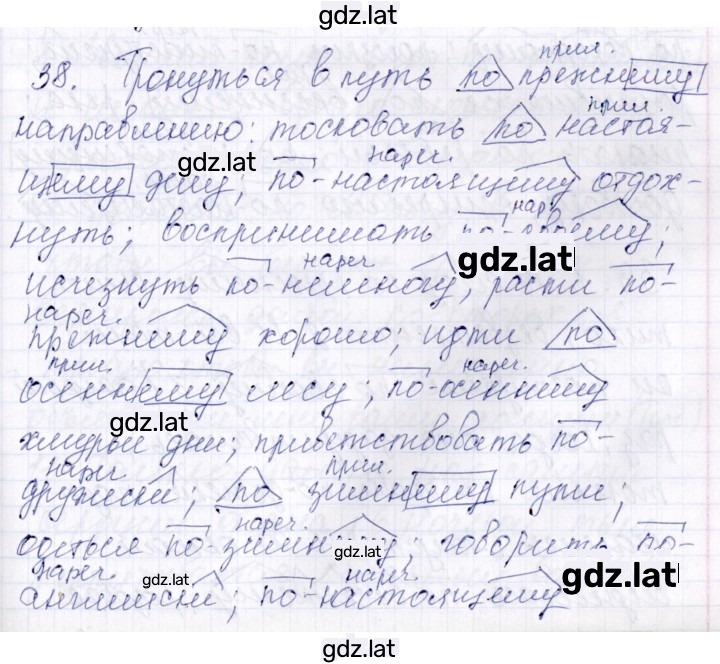 gdz.lat
прил.
38. Тронуться в путь по прежнему
прил.
направлению; тосковать по настоя-
gdz.lat нареч.
щему делу; по-настоящему отдох-
нар
нуть; воспринимать по-своему;
gdz.lat
нареч
исчезнуть по-немногу, расти по-
нареч.
прежнему хорошо; идти по
прил. нареч.
осеннему лесу; по-осеннему
gdz.lat
хмурые дни; приветствовать по-
нареч прил.
дружески; по зимнему пути;
нареч.
gdz.lat
одеться по-зимнему; говорить по-
нареч gdz.lat нареч gdz.lat
английски; по-настоящему
gdz.lat